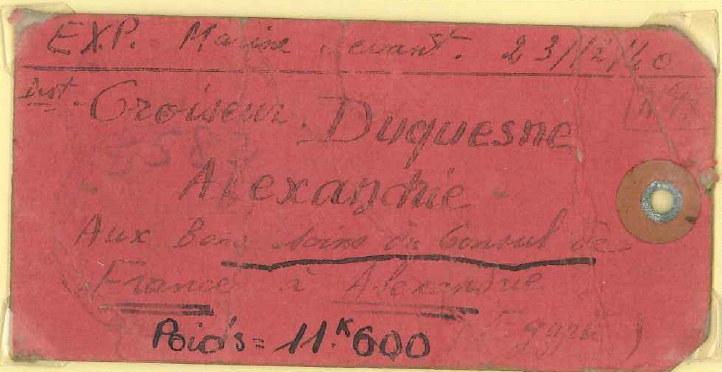 EXP. Marine Levant. 23/12/40
Dest. Croiseur Duquesne
Alexandrie
Aux Bons Soins du Consul de
France à Alexandrie
(Egypte)
Poids = 11.K600